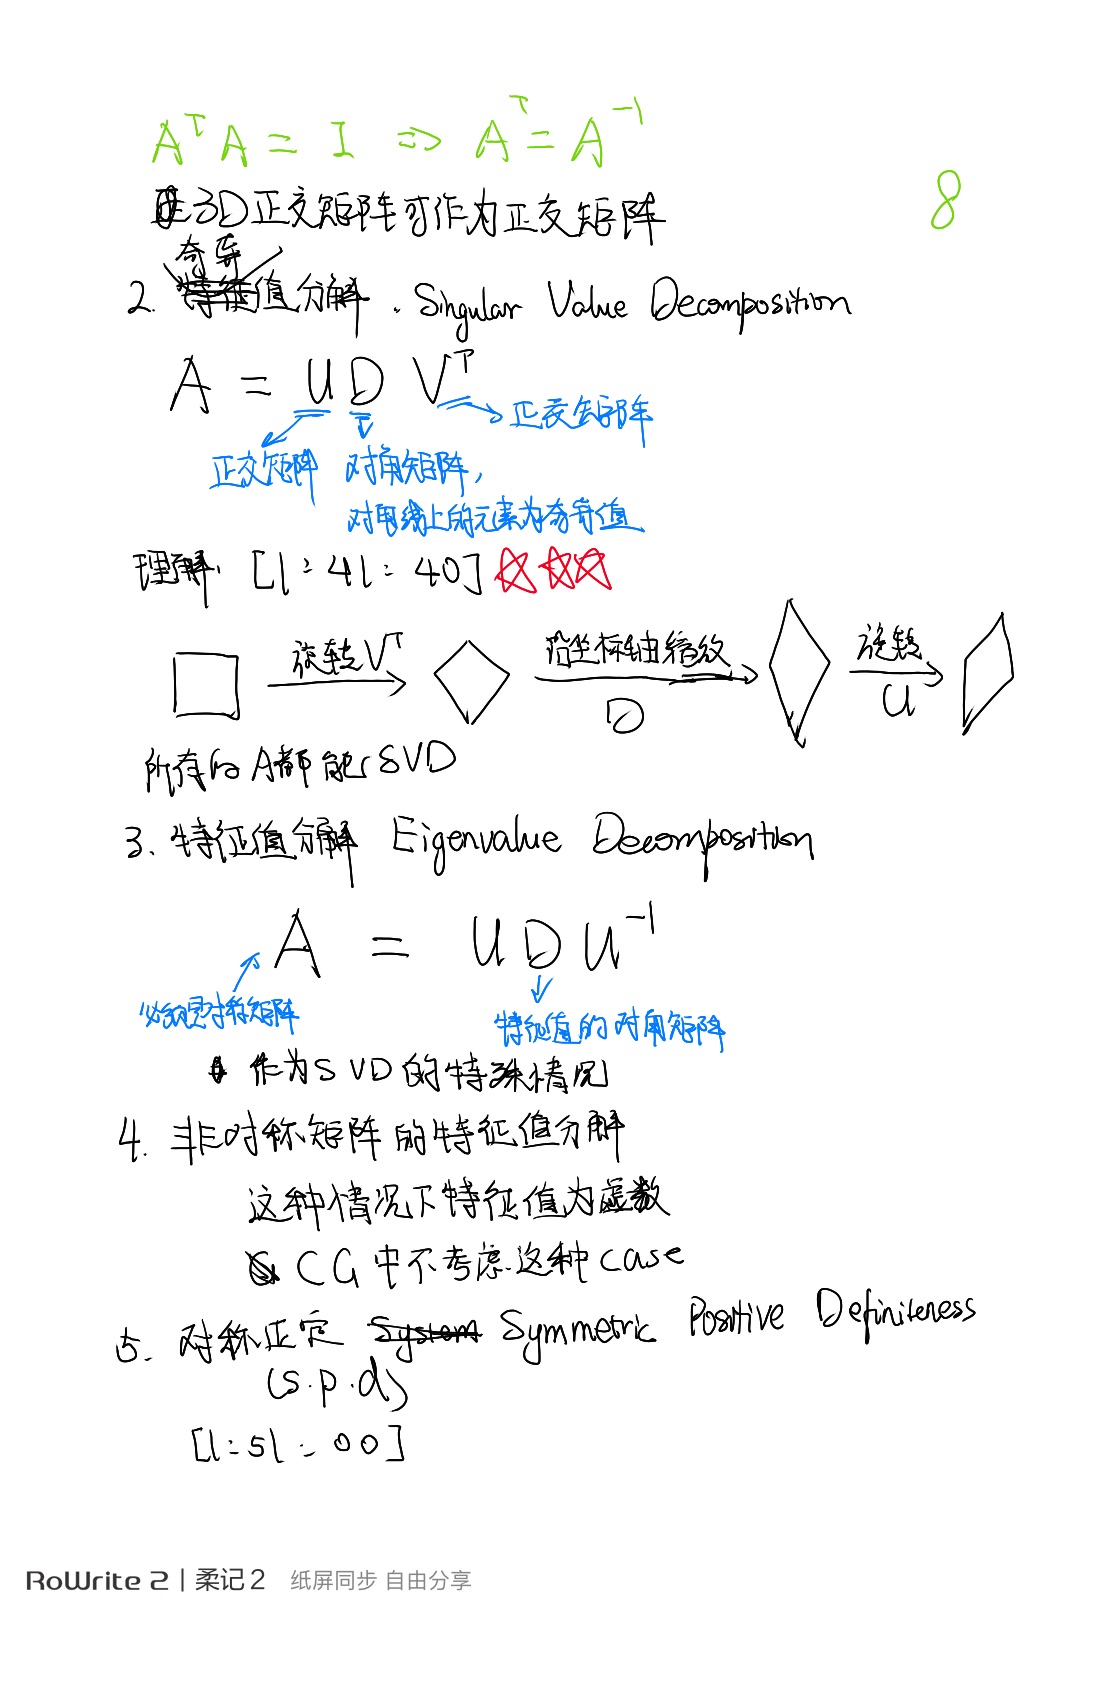 AᵀA = I ⇒ Aᵀ = A⁻¹
8
3D正交矩阵可作为正交矩阵
奇异
2. 特征值分解. Singular Value Decomposition
A = U D Vᵀ
正交矩阵
正交矩阵 对角矩阵,
对角线上的元素为奇异值
理解: [1:41:40]
旋转Vᵀ 沿坐标轴缩放 旋转
D U
所有的A都能SVD
3. 特征值分解 Eigenvalue Decomposition
A = U D U⁻¹
必须是对称矩阵 特征值的对角矩阵
作为SVD的特殊情况
4. 非对称矩阵的特征值分解
这种情况下特征值为虚数
CG中不考虑这种case
5. 对称正定 System Symmetric Positive Definiteness
(s.p.d)
[1:51:00]
RoWrite 2 | 柔记2 纸屏同步 自由分享